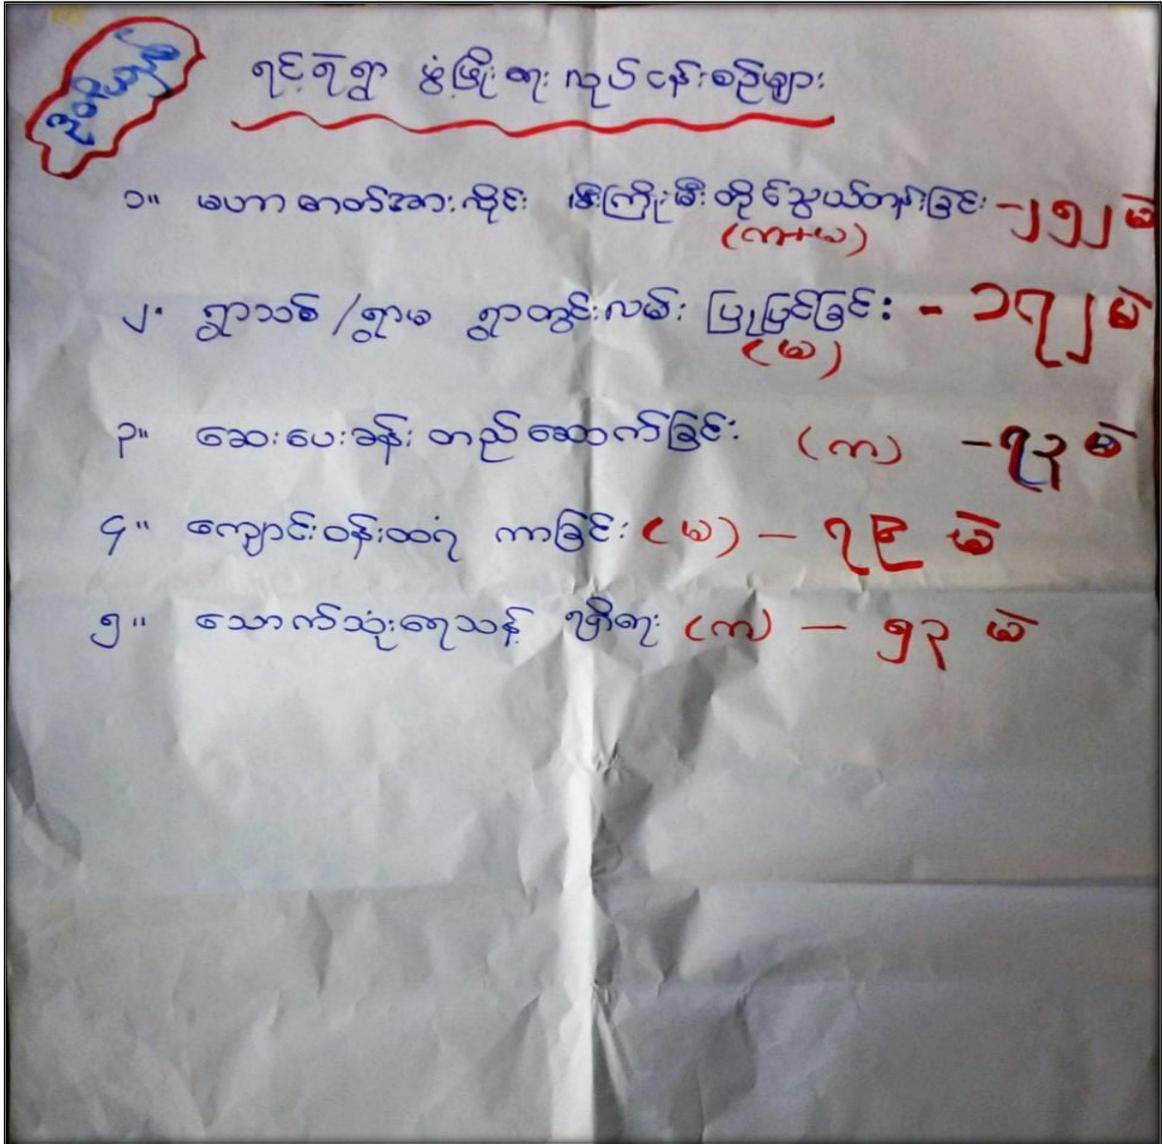 ရင့်ရဲရွာ ဖွံ့ဖြိုးရေး လုပ်ငန်းစဉ်များ
၁။ မဟာဓာတ်အားလိုင်း မီးကြိုးမီးတိုင်သွယ်တန်းခြင်း - ၂၅၂ မဲ
(က+မ)
၂. ရွာသစ်/ရွာမ ရွာတွင်းလမ်း ပြုပြင်ခြင်း - ၁၇၂ မဲ
(မ)
၃။ ဆေးပေးခန်း တည်ဆောက်ခြင်း (က) - ၇၃ မဲ
၄။ ကျောင်းဝန်းထရံ ကာခြင်း (မ) - ၇၉ မဲ
၅။ သောက်သုံးရေသန့် ရရှိရေး (က) - ၅၃ မဲ